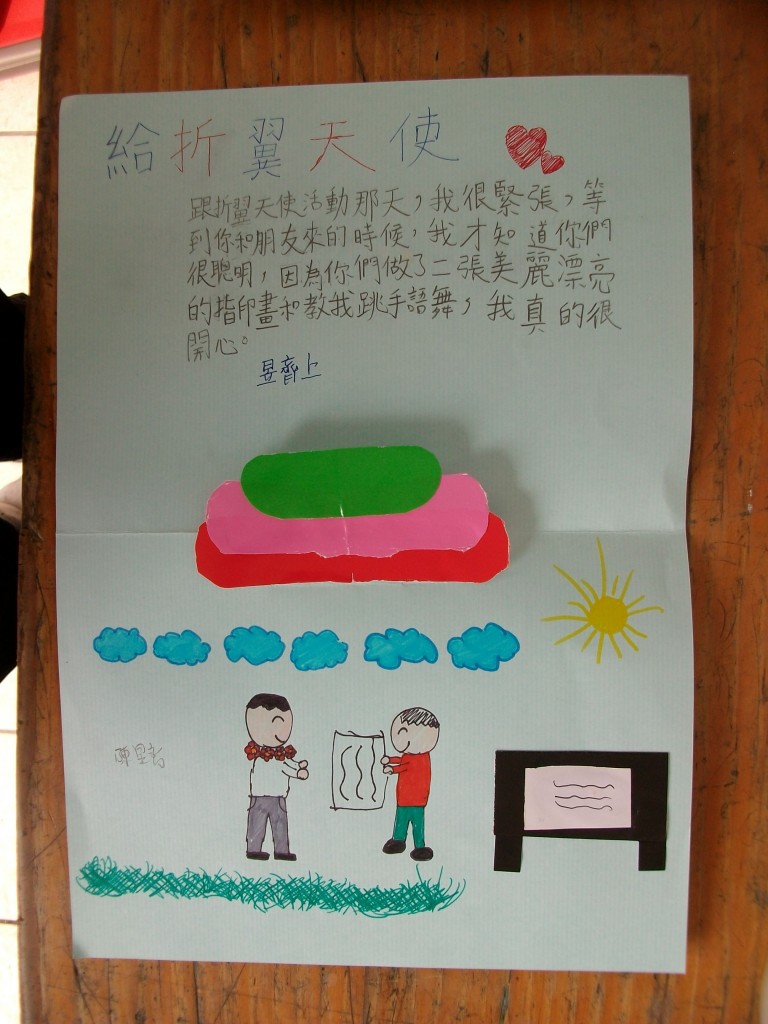 給折翼天使
跟折翼天使活動那天，我很緊張，等
到你和朋友來的時候，我才知道你們
很聰明，因為你們做了二張美麗漂亮
的指印畫和教我跳手語舞，我真的很
開心。
昱齊上